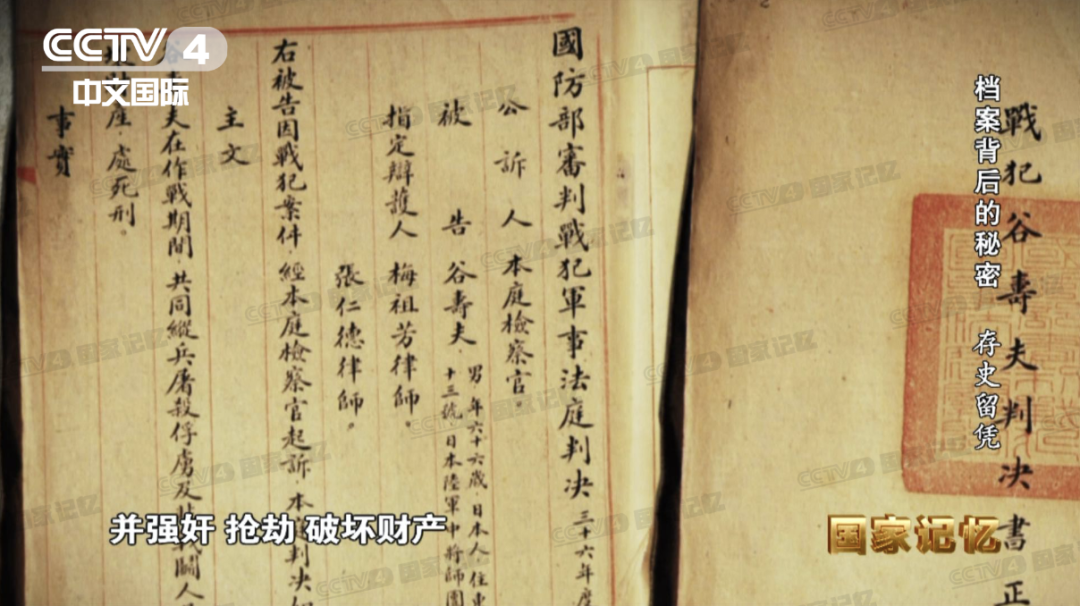 CCTV 4
中文国际
戰犯谷壽夫判决書正
國防部審判戰犯軍事法庭判决 三十六年度
公訴人 本庭檢察官。
被告 谷壽夫 男 年六十六歲. 日本人. 住東
十三號 日本陸軍中將師團
指定辯護人 梅祖芳律師。
張仁德律師。
右被告因戰犯案件. 經本庭檢察官起訴. 本庭判决如
主文
谷壽夫在作戰期間. 共同縱兵屠殺俘虜及非戰鬭人
產. 處死刑。
事實
档案背后的秘密 存史留凭
并强奸 抢劫 破坏财产
国家记忆